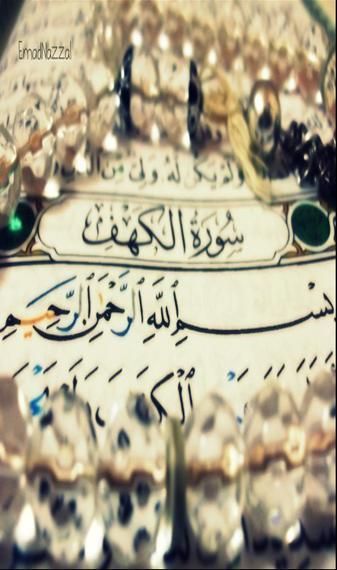 EmadNazzal
ولم يكن له ولي من
سُورَةُ الكَهْفِ
بِسْمِ اللَّهِ الرَّحْمَٰنِ الرَّحِيمِ